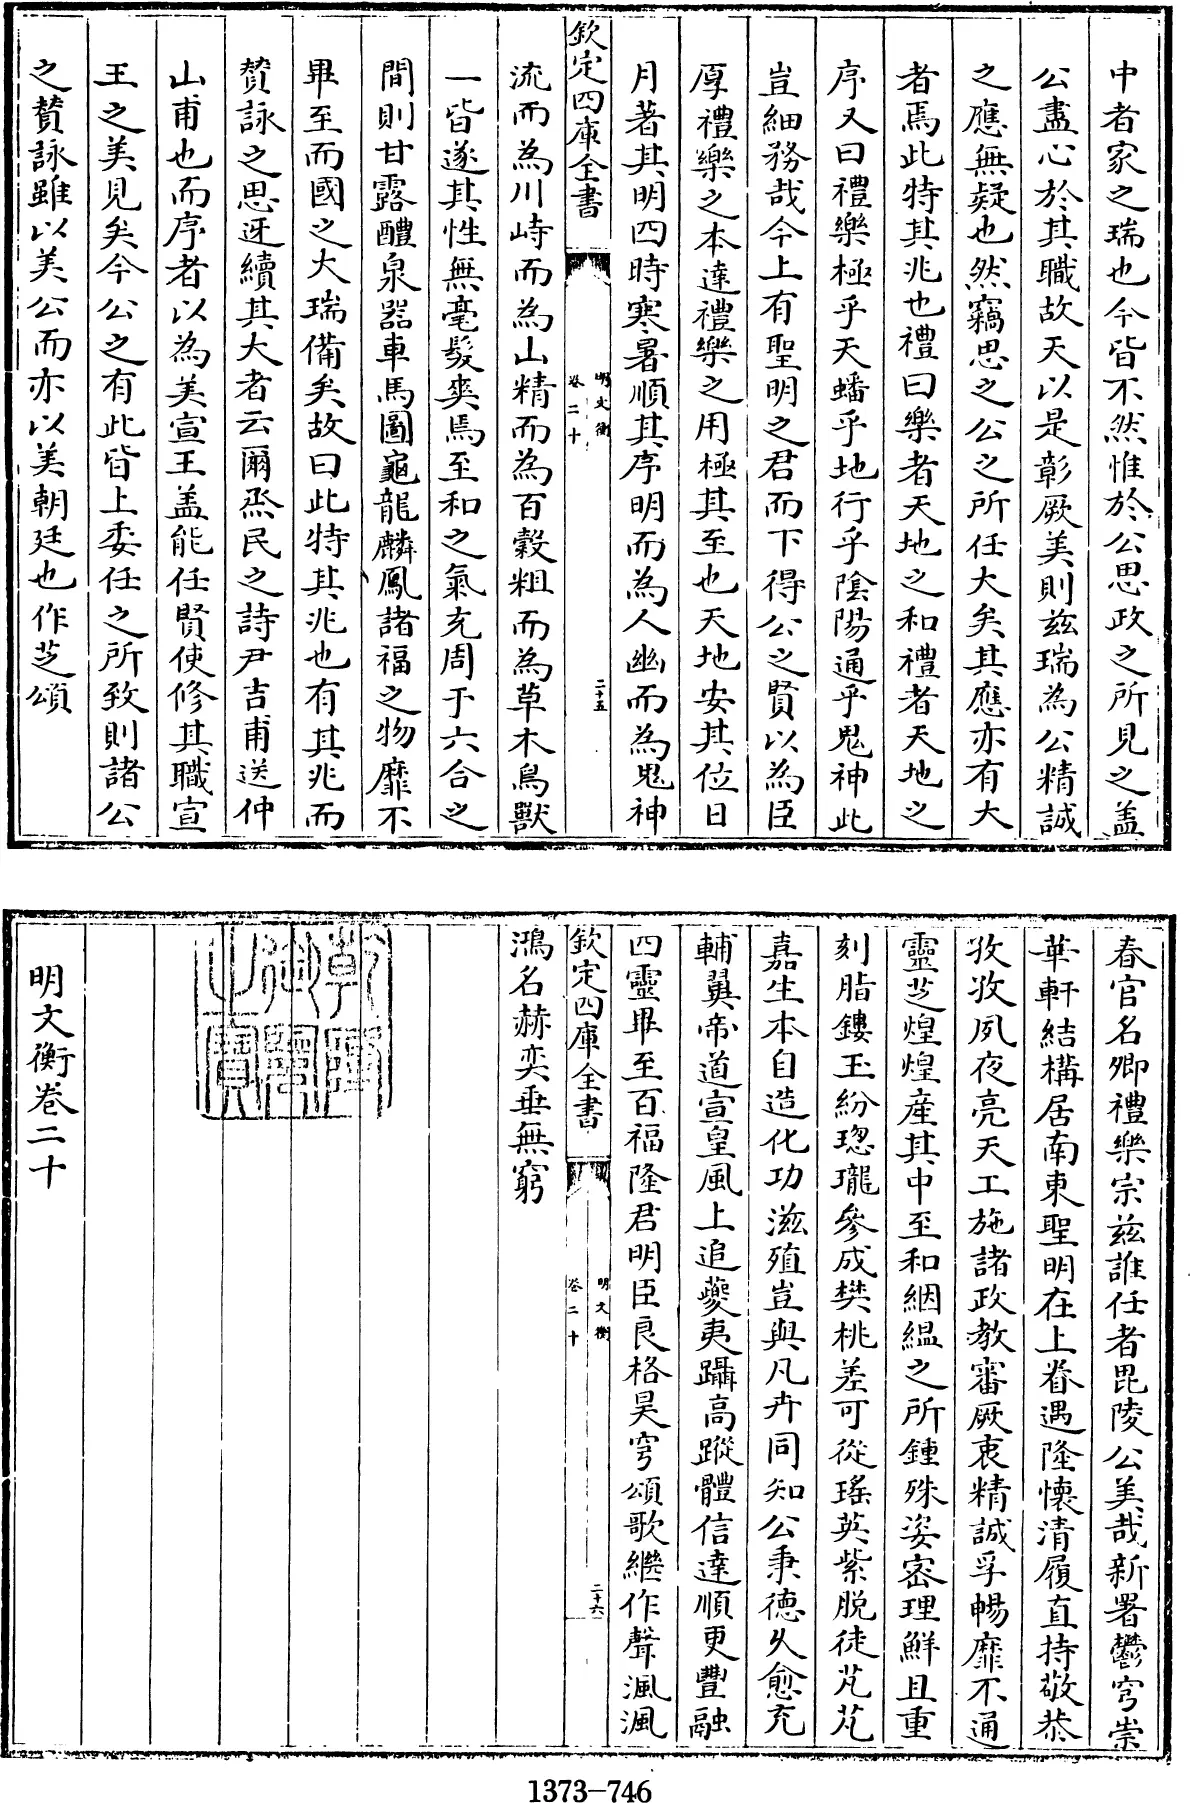 中者家之瑞也今皆不然惟於公思政之所見之盖
公盡心於其職故天以是彰厥美則兹瑞為公精誠
之應無疑也然竊思之公之所任大矣其應亦有大
者焉此特其兆也禮曰樂者天地之和禮者天地之
序又曰禮樂極乎天蟠乎地行乎陰陽通乎鬼神此
豈細務哉今上有聖明之君而下得公之賢以為臣
厚禮樂之本達禮樂之用極其至也天地安其位日
月著其明四時寒暑順其序明而為人幽而為鬼神
欽定四庫全書
明文衡
卷二十
二十五
流而為川峙而為山精而為百穀粗而為草木鳥獸
一皆遂其性無毫髮爽焉至和之氣充周于六合之
間則甘露醴泉器車馬圖龜龍麟鳳諸福之物靡不
畢至而國之大瑞備矣故曰此特其兆也有其兆而
贊詠之思迓續其大者云爾烝民之詩尹吉甫送仲
山甫也而序者以為美宣王盖能任賢使修其職宣
王之美見矣今公之有此皆上委任之所致則諸公
之贊詠雖以美公而亦以美朝廷也作芝頌
春官名卿禮樂宗兹誰任者毘陵公美哉新署鬱穹崇
華軒結構居南東聖明在上眷遇隆懷清履直持敬恭
孜孜夙夜亮天工施諸政教審厥衷精誠孚暢靡不通
靈芝煌煌産其中至和絪緼之所鍾殊姿密理鮮且重
刻脂鏤玉紛璁瓏參成樊桃差可從瑤英紫脱徒芃芃
嘉生本自造化功滋殖豈與凡卉同知公秉德久愈充
輔翼帝道宣皇風上追夔夷躡高蹤體信達順更豐融
四靈畢至百福隆君明臣良格昊穹頌歌繼作聲渢渢
欽定四庫全書
明文衡
卷二十
二十六
鴻名赫奕垂無窮
乾隆御覽之寶
明文衡卷二十
1373-746